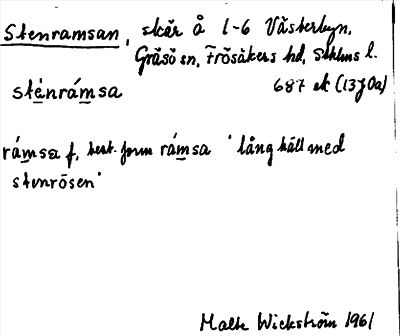 Stenramsan, skär å 1-6 Västerbyn,
Gräsö sn, Frösåkers hd, Sthlms l.
687 ek (13J0a)
sténrámsa
rámsa f, best. form rámsa 'lång häll med
stenrösen'
Malte Wickström 1961